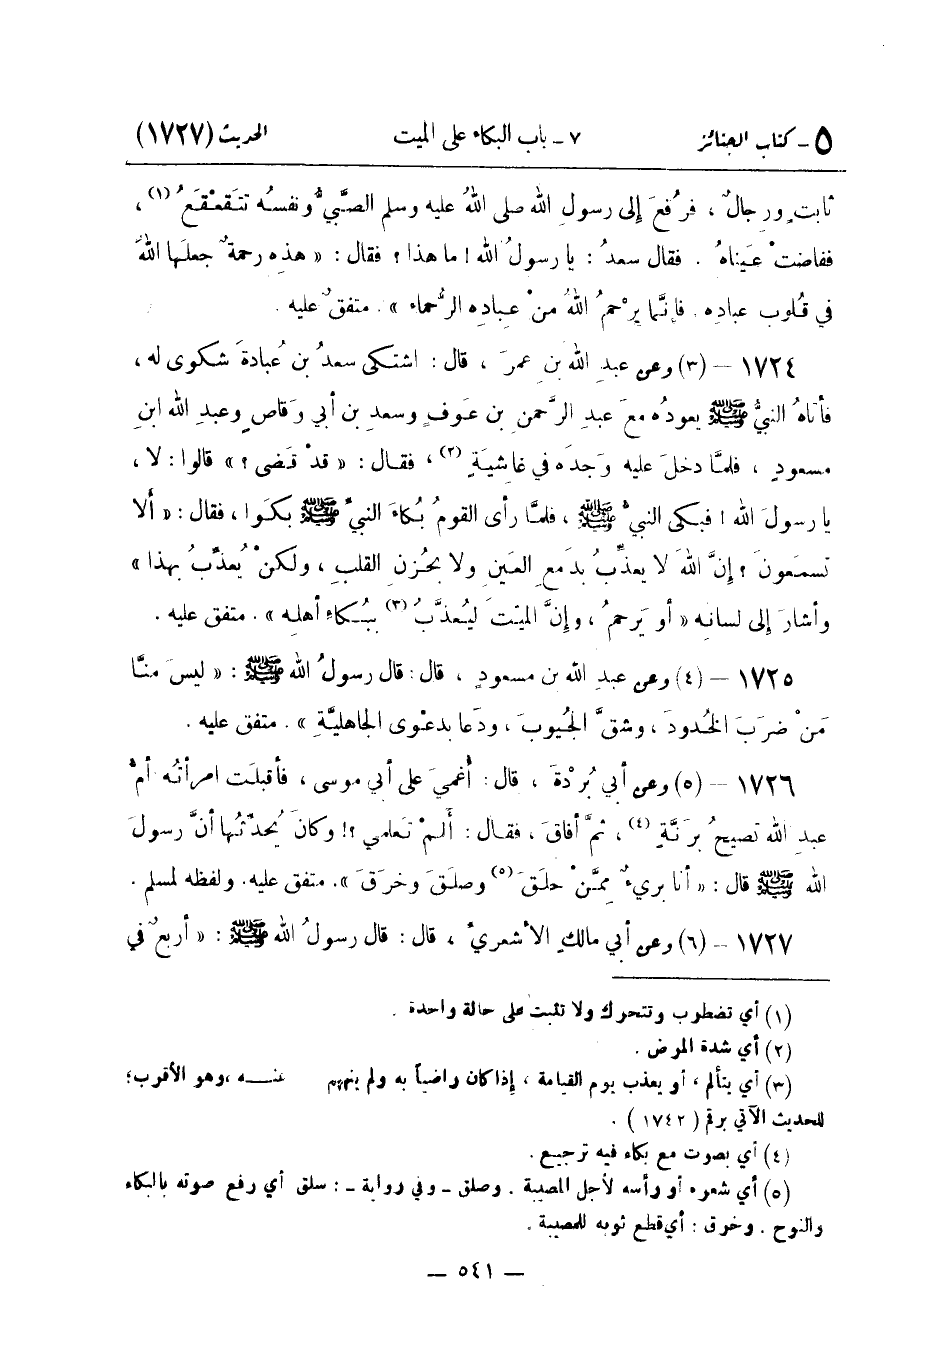 ٥ - كتاب الجنائز ٧ - باب البكاء على الميت الحديث (١٧٢٧)
ثابتٍ ورجالٌ ، فرُفعَ إلى رسولِ الله صلى اللهُ عليه وسلم الصَّبيُّ ونفسُه تتَقَعْقَعُ (١) ،
ففاضتْ عَيناهُ . فقال سعدُ : يا رسولُ الله ! ما هذا ؟ فقال : « هذه رحمةٌ جعلَها اللهُ
في قُلوبِ عبادِه . فإنَّما يرْحمُ اللهُ منْ عبادِه الرُّحماء » . متفقٌ عليه .
١٧٢٤ – (٣) وعن عبدِ الله بن عمرَ ، قال : اشتكى سعدُ بن عُبادةَ شكوى له ،
فأتاهُ النبيُّ ﷺ يعودُه معَ عبدِ الرَّحمنِ بن عَوفٍ وسعدِ بن أبي وقاصٍ وعبدِ الله ابنِ
مسعودٍ ، فلمَّا دخلَ عليه وَجدَه في غاشيَةٍ (٢) ، فقال : « قدْ قَضى ؟ » قالوا : لا ،
يا رسولَ الله ! فبكى النبيُّ ﷺ ، فلمَّا رأى القومُ بُكاءَ النبيِّ ﷺ بكَوا ، فقال : « ألا
تسمَعونَ ؟ إنَّ اللهَ لا يعذِّبُ بدَمعِ العَينِ ولا بحُزنِ القلبِ ، ولكنْ يُعذِّبُ بهذا »
وأشارَ إلى لسانِه « أو يَرحمُ ، وإنَّ الميّتَ ليُعذَّبُ (٣) ببُكاءِ أهلِه » . متفق عليه .
١٧٢٥ – (٤) وعن عبدِ الله بن مسعودٍ ، قال : قال رسولُ الله ﷺ : « ليسَ منَّا
مَنْ ضرَبَ الخُدودَ ، وشقَّ الجُيوبَ ، ودَعا بدعْوى الجاهليَّةِ » . متفق عليه .
١٧٢٦ – (٥) وعن أبي بُرْدةَ ، قال : أُغميَ على أبي موسى ، فأقبلَت امرأتُه أمُّ
عبدِ الله تصيحُ برَنَّةٍ (٤) ، ثمَّ أفاقَ ، فقال : ألمْ تَعلمي ؟! وكانَ يُحدِّثُها أنَّ رسولَ
الله ﷺ قال : « أنا بريءٌ ممَّنْ حلَقَ (٥) وصلَقَ وخرَقَ » . متفق عليه . ولفظه لمسلم .
١٧٢٧ – (٦) وعن أبي مالكٍ الأشعريِّ ، قال : قال رسولُ الله ﷺ : « أربعٌ في
(١) أي تضطرب وتتحرك ولا تثبت على حالة واحدة .
(٢) أي شدة المرض .
(٣) أي يتألم ، أو يعذب يوم القيامة ، إذا كان راضياً به ولم ينههم عنه ، وهو الأقرب ؛
للحديث الآتي برقم ( ١٧٤٢ ) .
(٤) أي بصوت مع بكاء فيه ترجيع .
(٥) أي شعره أو رأسه لأجل المصيبة . وصلق - وفي رواية - : سلق أي رفع صوته بالبكاء
والنوح . وخرق : أي قطع ثوبه للمصيبة .
– ٥٤١ –